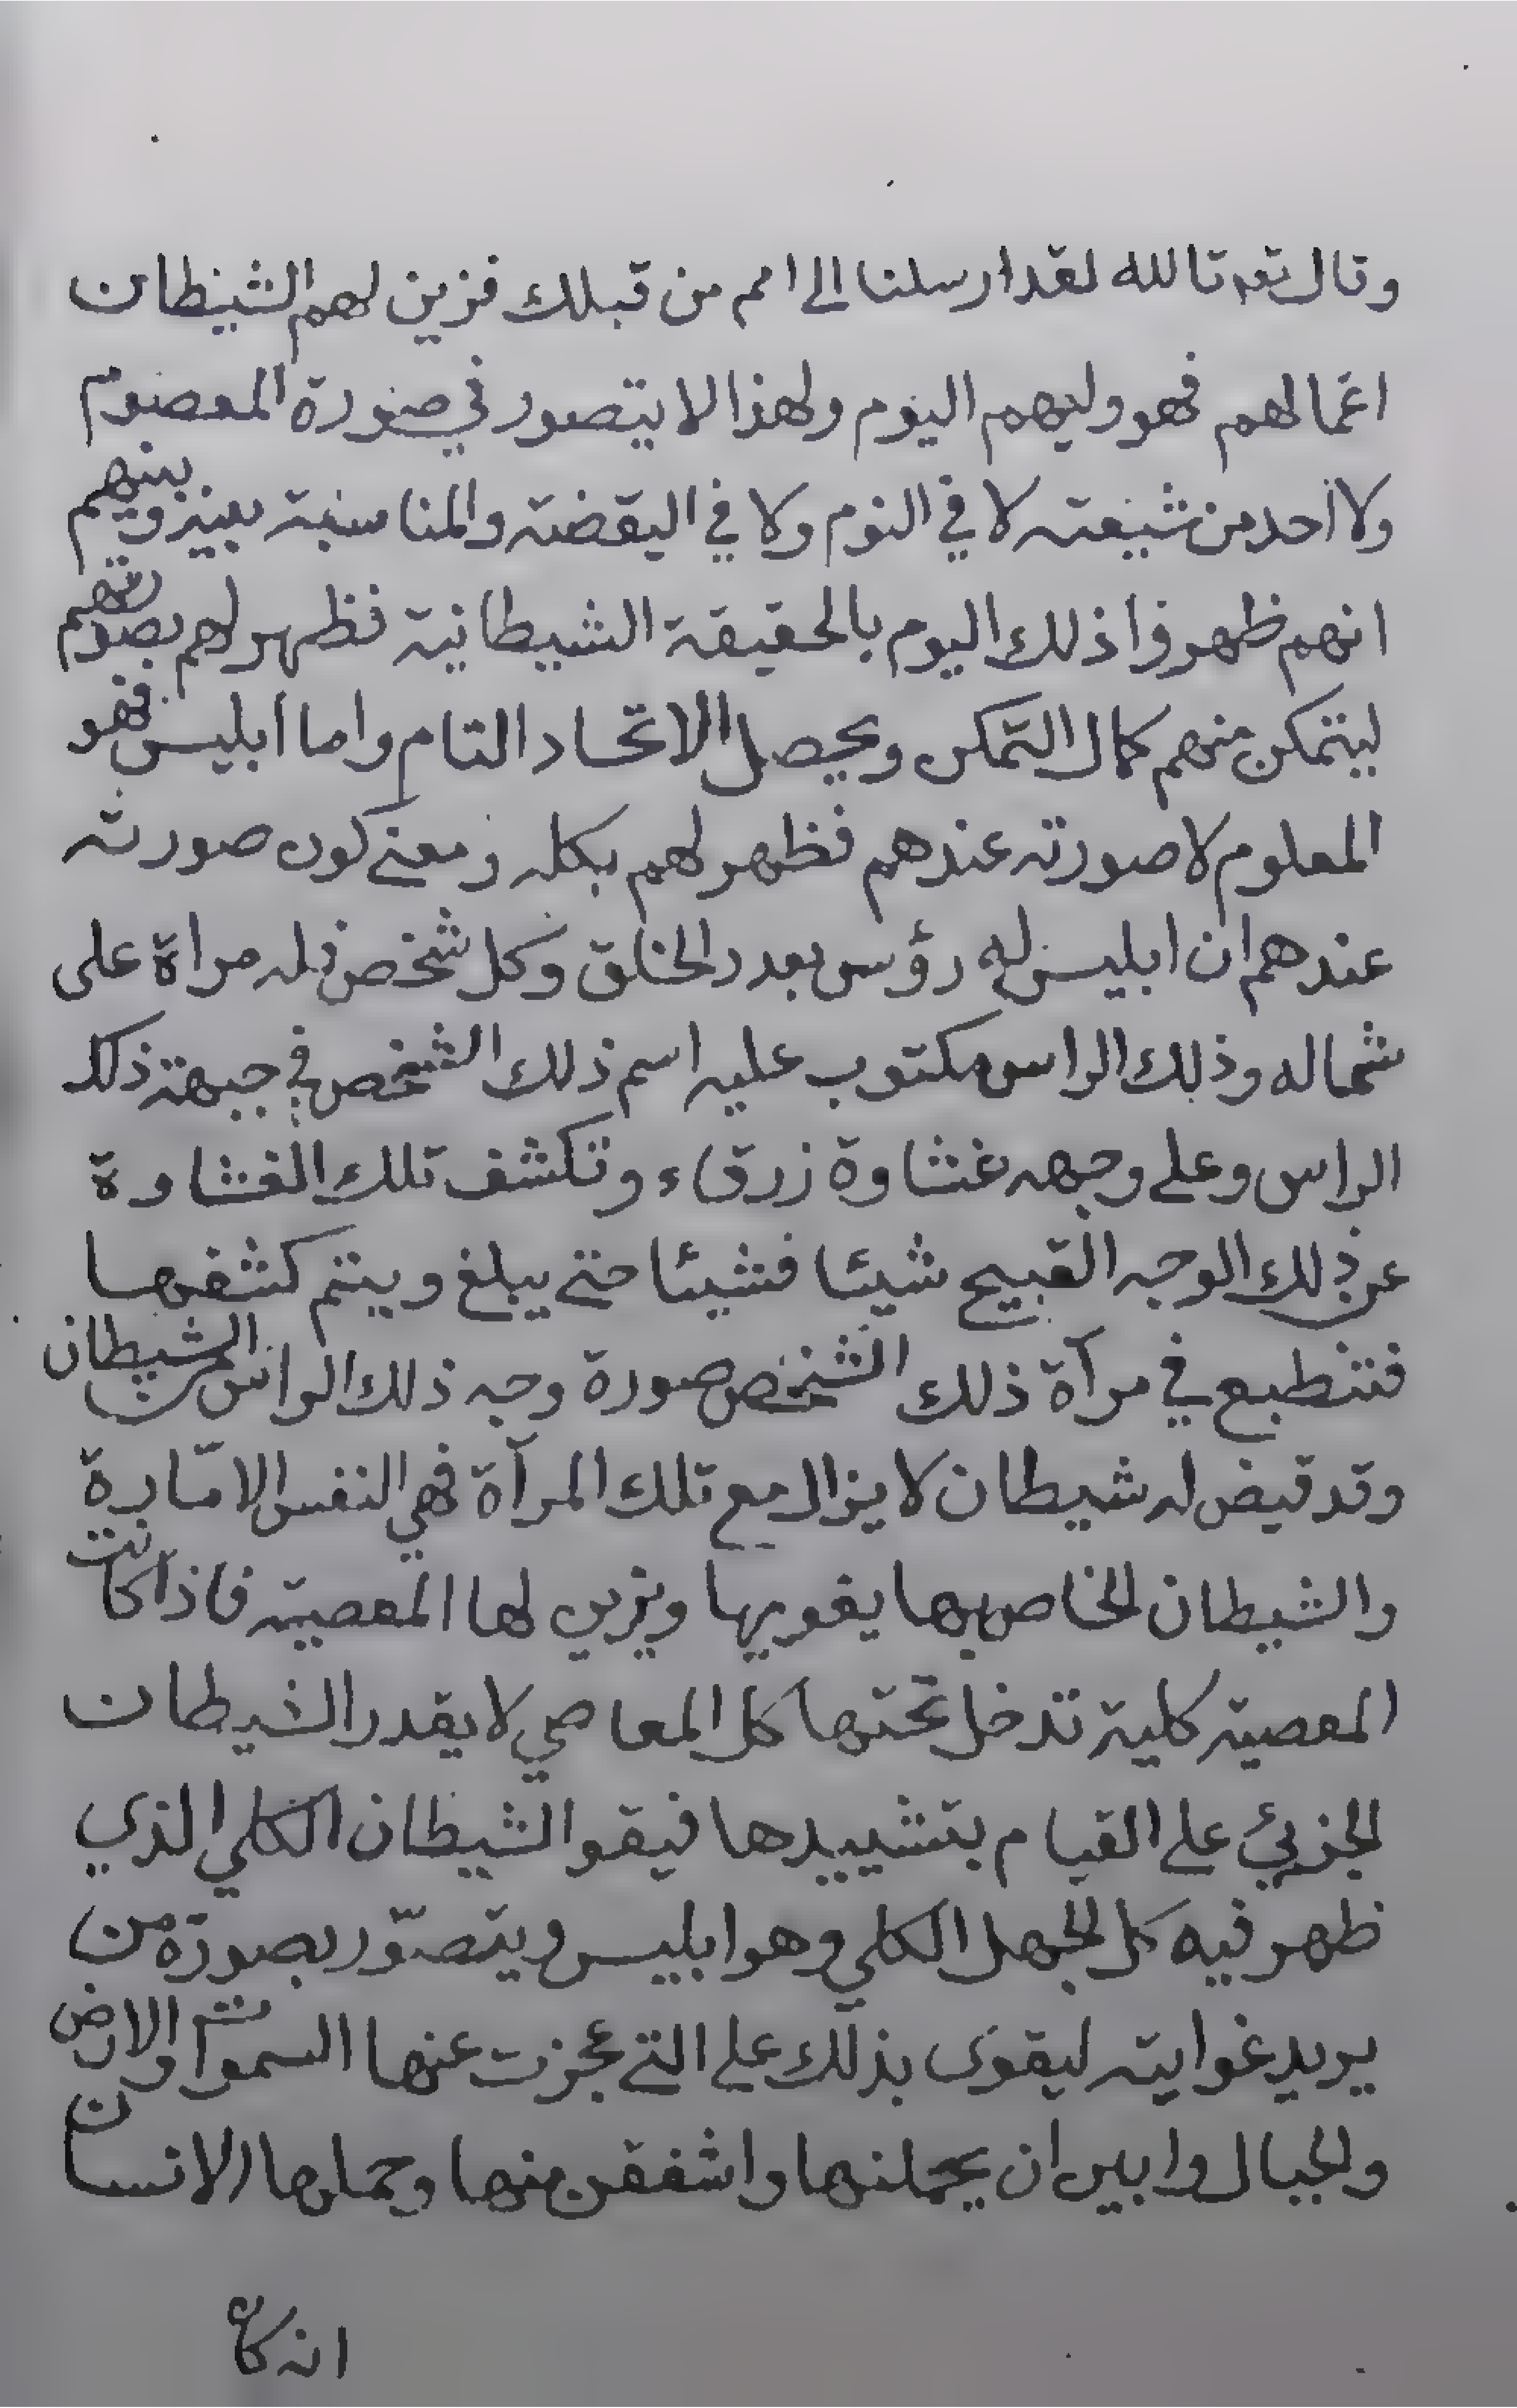 وقال تعه تالله لقد ارسلنا الى امم من قبلك فزين لهم الشيطان
اعمالهم فهو وليهم اليوم ولهذا لا يتصور في صورة المعصوم
ولا احد من شيعته لا في النوم ولا في اليقضة والمناسبة بينه وبينهم
انهم ظهروا ذلك اليوم بالحقيقة الشيطانية فظهر لهم بصورتهم
ليتمكن منهم كمال التمكن ويحصل الاتحاد التام واما ابليس فهو
المعلوم لا صورته عندهم فظهر لهم بكله ومعنى كون صورته
عندهم ان ابليس له رؤس بعدد الخلق وكل شخص فله مراة على
شماله وذلك الراس مكتوب عليه اسم ذلك الشخص في جبهة ذلك
الراس وعلى وجهه غشاوة زرقاء وتكشف تلك الغشاوة
عن ذلك الوجه القبيح شيئا فشيئا حتى يبلغ ويتم كشفها
فتنطبع في مرآة ذلك الشخص صورة وجه ذلك الراس الشيطان
وقد قيض له شيطان لا يزال مع تلك المرآة فهي النفس الامّارة
والشيطان الخاص بها يغويها ويزين لها المعصية فاذا كانت
المعصية كلية تدخل تحتها كل المعاصي لا يقدر الشيطان
الجزئي على القيام بتشييدها فيقوا الشيطان الكلي الذي
ظهر فيه كل الجهل الكلي وهو ابليس ويتصوّر بصورة من
يريد غوايته ليقوى بذلك على التي عجزت عنها السموات والارض
والجبال وابين ان يحملنها واشفقن منها وحملها الانسان
انه كان